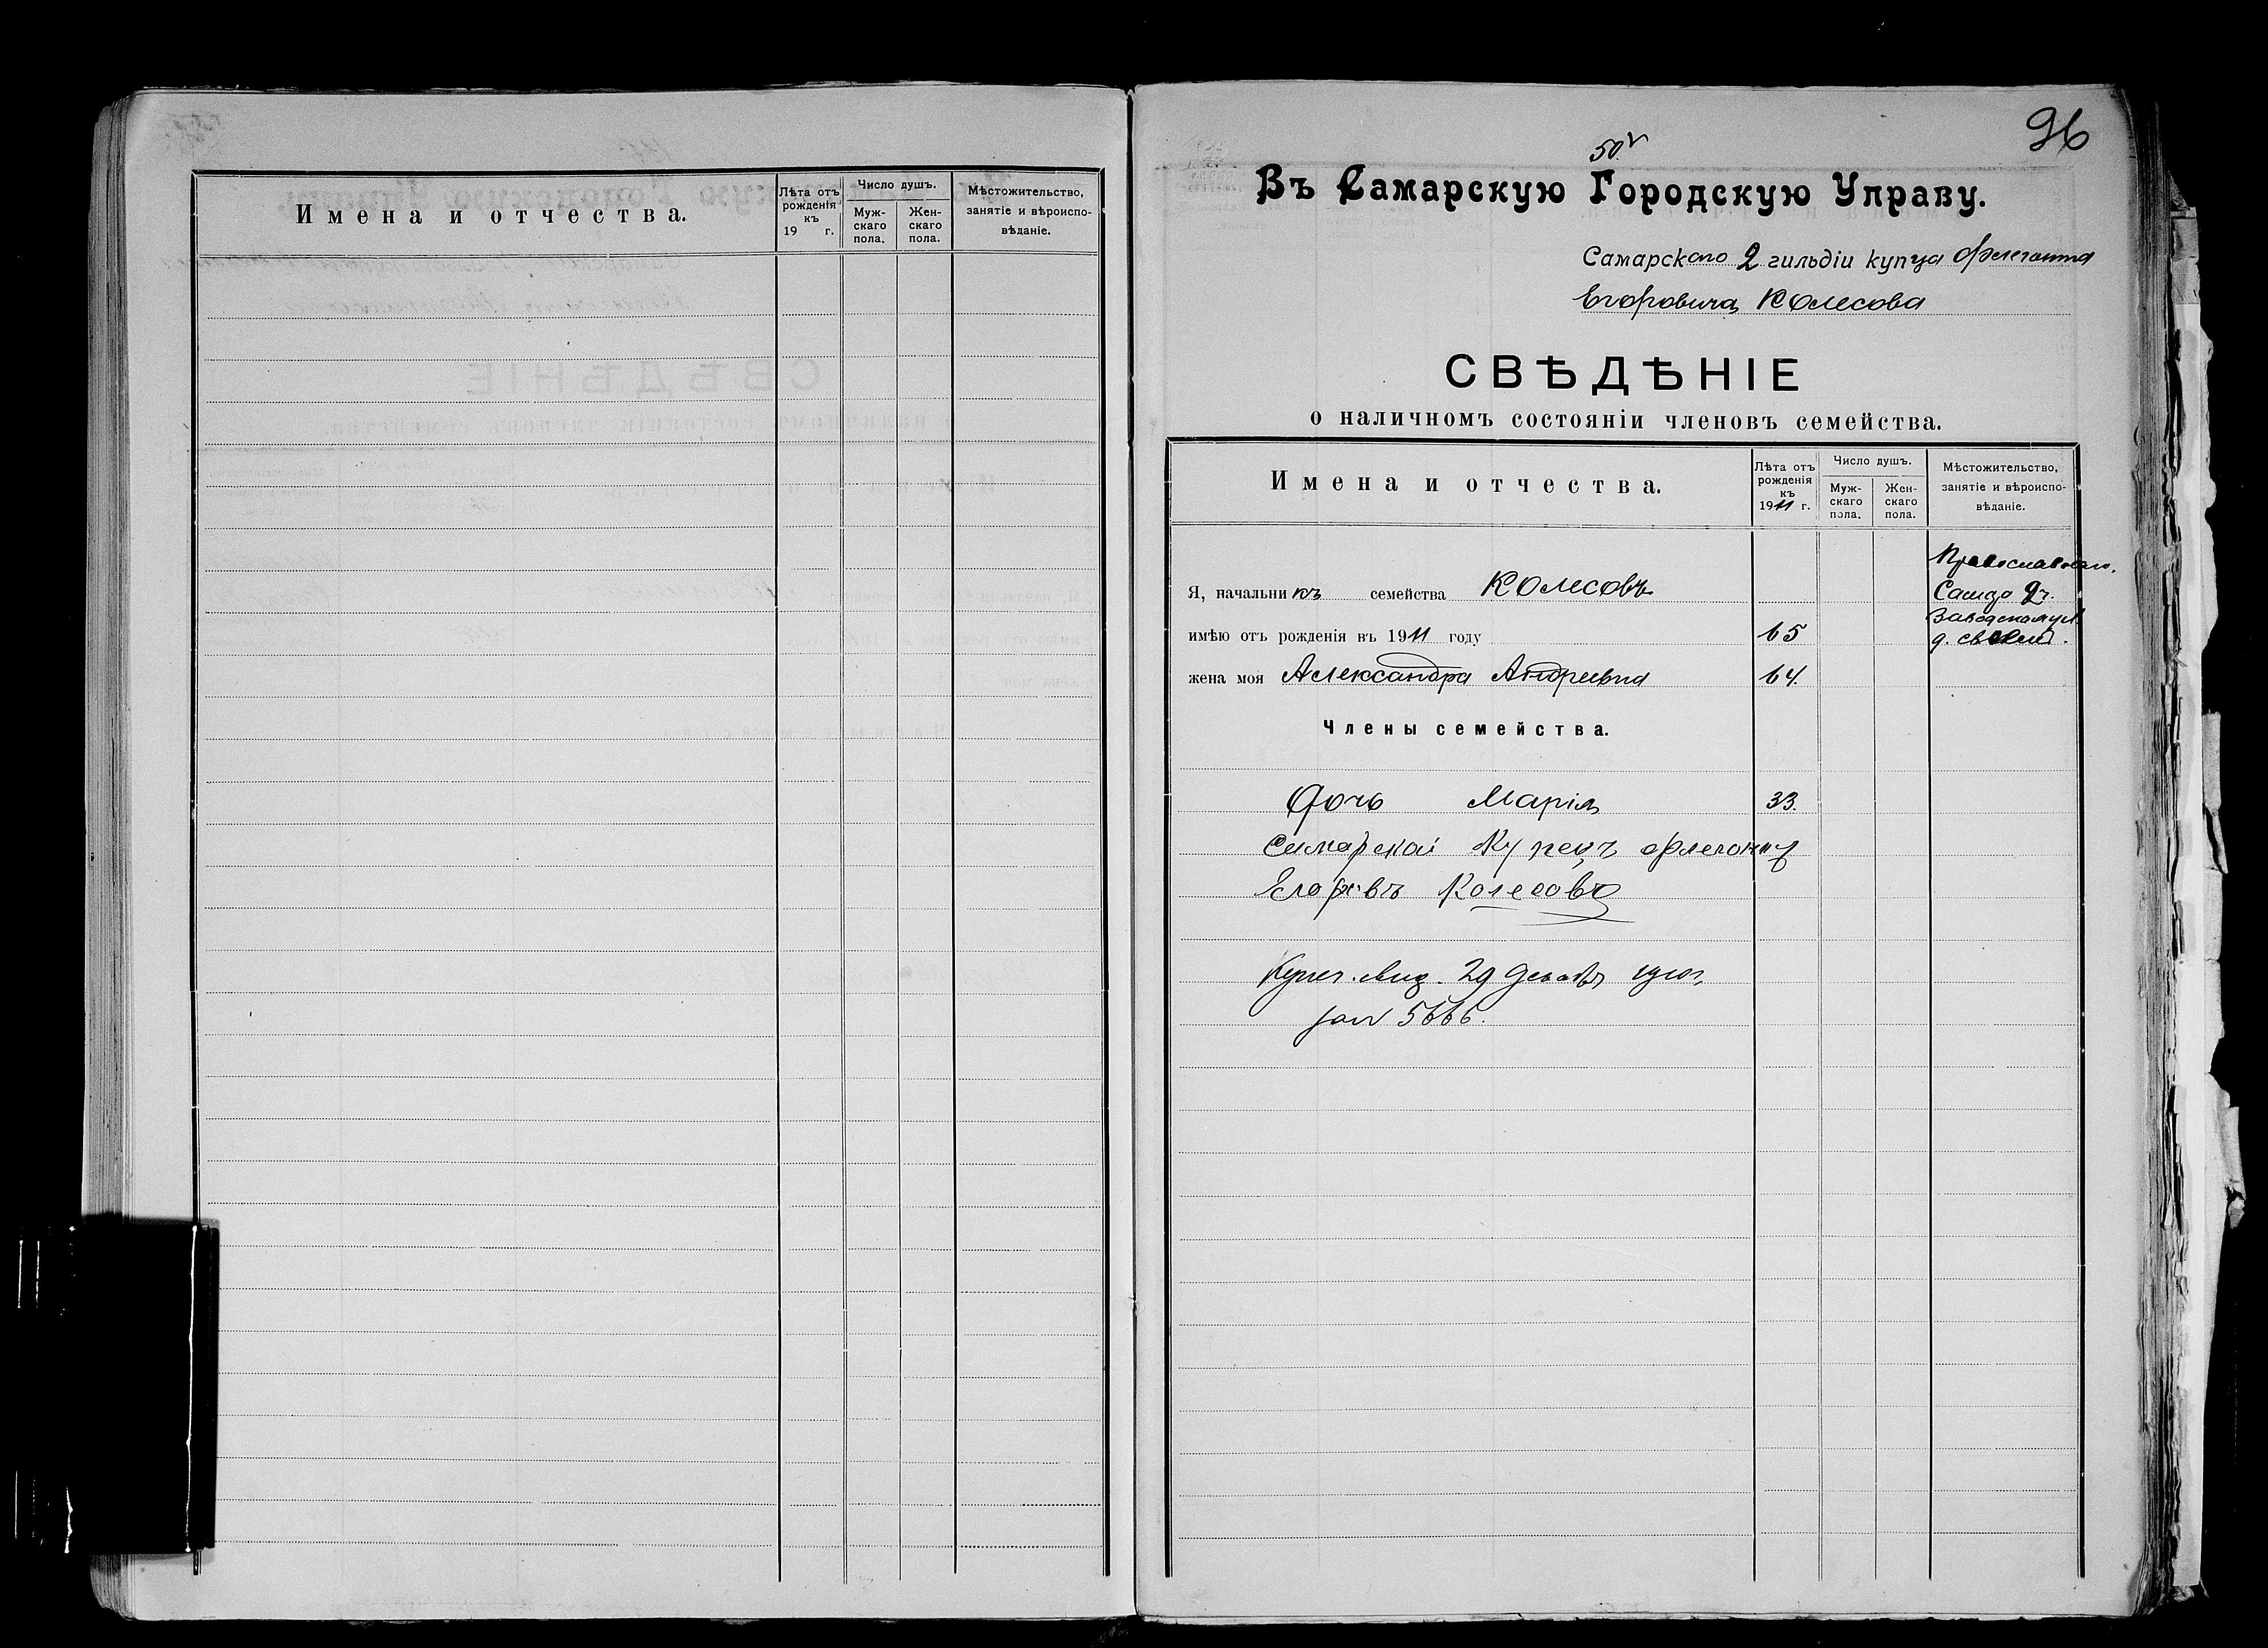 Имена и отчества.
Лѣта отъ рожденія къ 19 г.
Число душъ.
Муж-скаго пола.
Жен-скаго пола.
Мѣстожительство, занятіе и вѣроиспо-вѣданіе.
96
50.
Въ Самарскую Городскую Управу.
Самарскаго 2 гильдіи купца Флегонта
Егоровича Колесова
СВѢДѢНІЕ
о наличномъ состояніи членовъ семейства.
Имена и отчества.
Лѣта отъ рожденія къ 1911 г.
Число душъ.
Муж-скаго пола.
Жен-скаго пола.
Мѣстожительство, занятіе и вѣроиспо-вѣданіе.
Православнаго.
Я, начальникъ семейства Колесовъ
Самара 2ч.
Заводская ул.
имѣю отъ рожденія въ 1911 году 65
д. свой
жена моя Александра Андреевна 64.
Члены семейства.
Дочь Марія 33.
Самарскай Купецъ Флегонтъ
Егоровъ Колесовъ
Купеч. 29 Декабр 1910г.
5666.